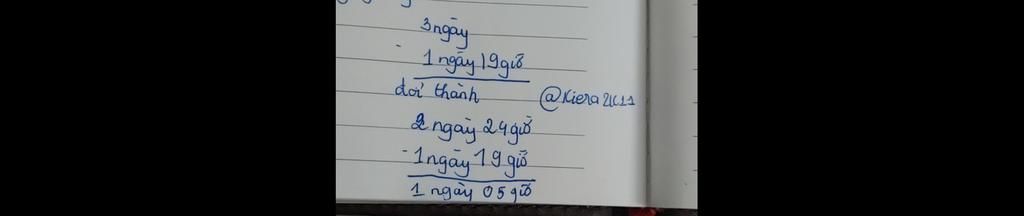 3 ngày
- 1 ngày 19 giờ
đổi thành
@Kiera2K11
2 ngày 24 giờ
- 1 ngày 19 giờ
1 ngày 05 giờ